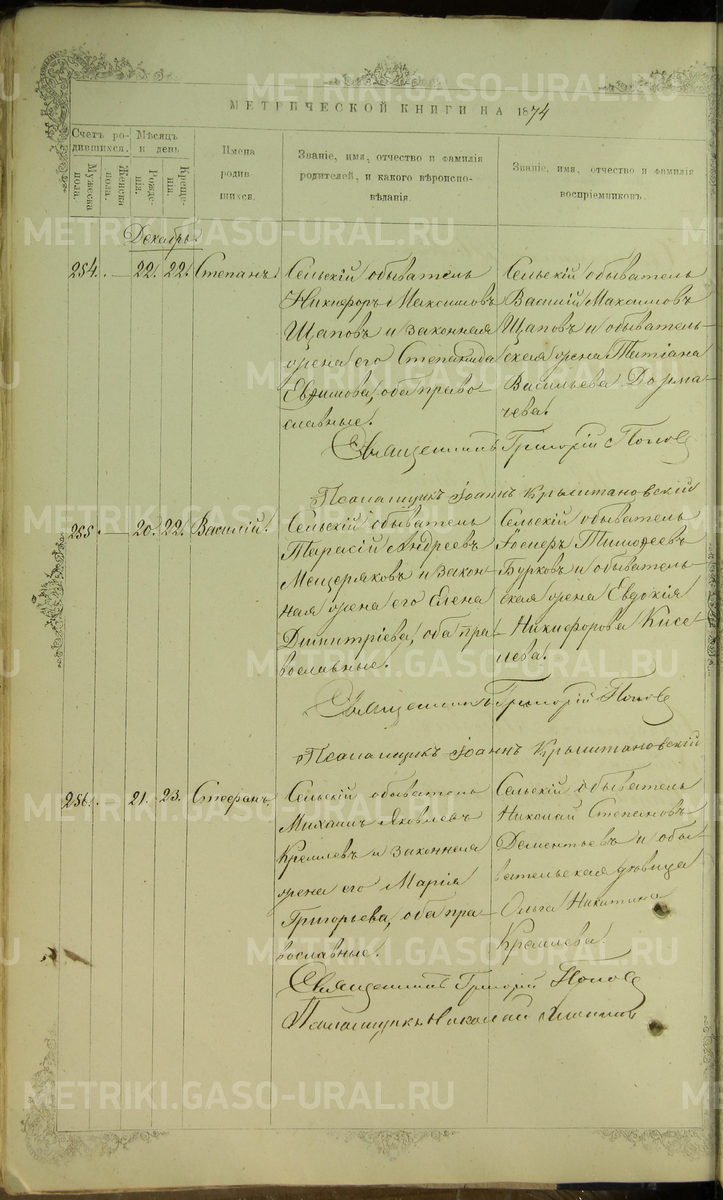 МЕТРИЧЕСКОЙ КНИГИ НА 1874
Счетъ родившихся.
Мужеска пола.
Женска пола.
Мѣсяцъ и день
Рожденія.
Крещенія.
Имена родившихся.
Званіе, имя, отчество и фамилія родителей, и какого вѣроисповѣданія.
Званіе, имя, отчество и фамилія воспріемниковъ.
Декабрь.
254. — 22. 22. Степанъ.
Сельскій обыватель
Никифоръ Максимовъ
Щаповъ и законная
жена его Степанида
Евѳимова, оба право-
славные.
Сельскій обыватель
Василій Максимовъ
Щаповъ и обыватель-
ская жена Татіана
Васильева Дорма-
чева.
Священникъ Григорій Поповъ
Псаломщикъ Іоаннъ Крыштановскій
255. — 20. 22. Василій.
Сельскій обыватель
Тарасій Андреевъ
Мещеряковъ и закон-
ная жена его Елена
Димитріева, оба пра-
вославные.
Сельскій обыватель
Іосифъ Тимоѳеевъ
Бурковъ и обыватель-
ская жена Евдокія
Никифорова Кисе-
лева.
Священникъ Григорій Поповъ
Псаломщикъ Іоаннъ Крыштановскій
256. — 21. 23. Стефанъ.
Сельскій обыватель
Михаилъ Яковлевъ
Кремлевъ и законная
жена его Марія
Григорьева, оба пра-
вославные.
Сельскій обыватель
Николай Степановъ
Дементьевъ и обы-
вательская вдовица
Ольга Никитина
Кремлева.
Священникъ Григорій Поповъ
Псаломщикъ Николай
METRIKI.GASO-URAL.RU